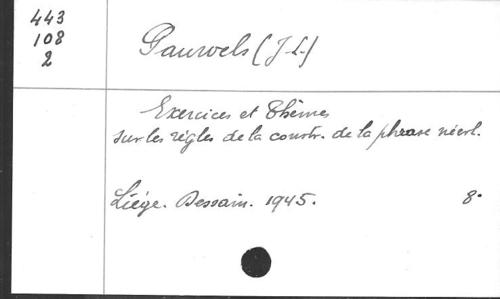 443
108
2
Pauwels (J-L.)
Exercices et Thèmes
sur les règles de la constr. de la phrase néerl.
Liége. Dessain. 1945. 8°